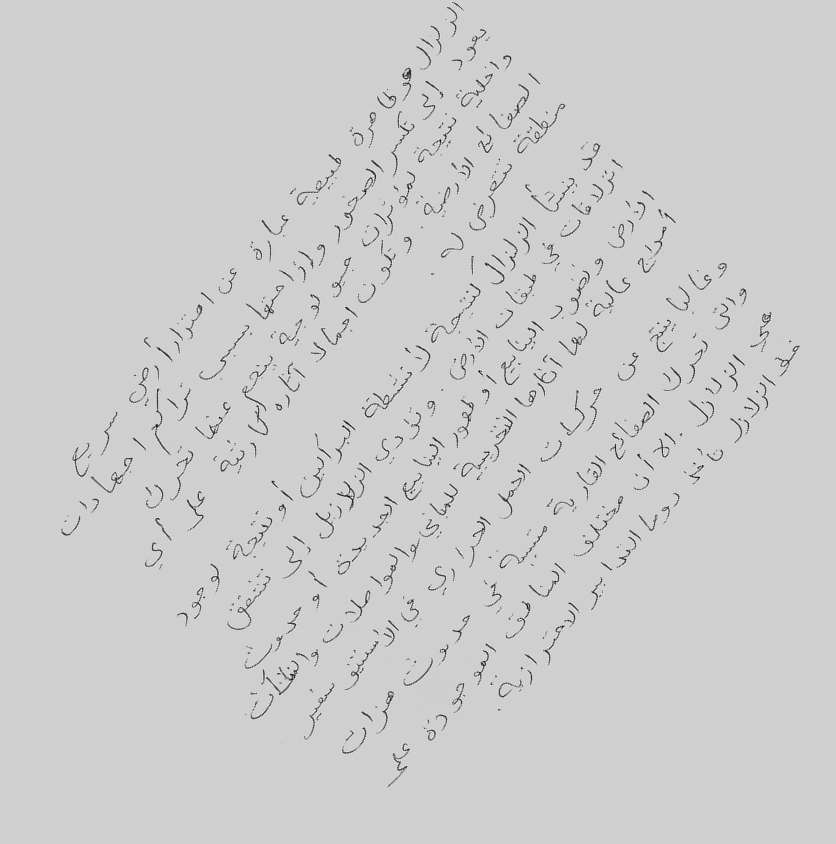 الزلزال هو ظاهرة طبيعية عبارة عن اهتزاز أرضي سريع
يعود إلى تكسر الصخور وإزاحتها بسبب تراكم اجهادات
داخلية نتيجة لمؤثرات جيولوجية ينجم عنها تحرك
الصفائح الأرضية. وتكون اجمالا آثاره كارثية على أي
منطقة تتعرض له.
قد ينشأ الزلزال كنتيجة لأنشطة البراكين أو نتيجة لوجود
انزلاقات في طبقات الأرض. وتؤدي الزلازل إلى تشقق
الأرض ونضوب الينابيع أو ظهور الينابيع الجديدة أو حدوث
أمواج عالية لها آثارها التخريبية للمباني والمواصلات والمنشآت
وغالبا ينتج عن حركات الحمل الحراري في الأستينوسفير
والتي تحرك الصفائح القارية متسببة في حدوث هزات
هي الزلازل. الا أن مختلف المناطق الموجودة على
خط الزلازل تأخذ دوما التدابير الاحترازية.